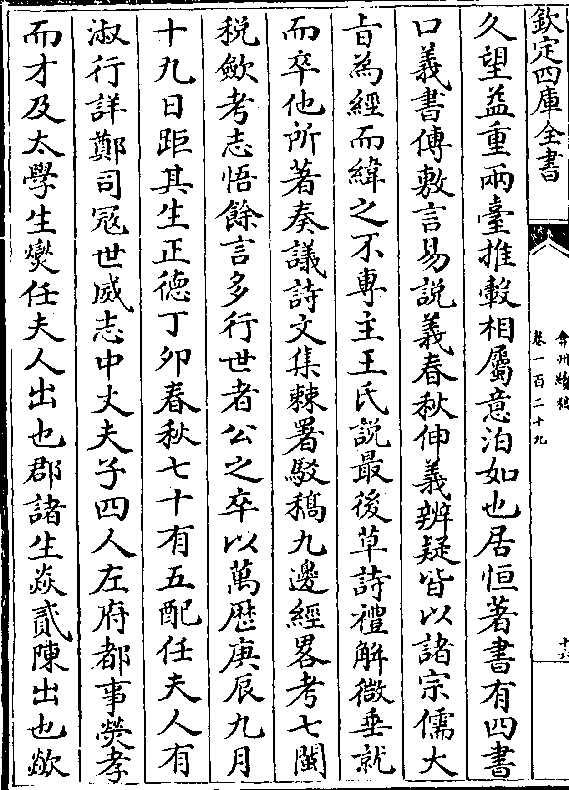 欽定四庫全書
弇州續稿
卷一百二十九
十六
久望益重兩臺推轂相屬意泊如也居恒著書有四書
口義書傳敷言易說義春秋伸義辨疑皆以諸宗儒大
㫖為經而緯之不専主王氏說最後草詩禮解微垂就
而卒他所著奏議詩文集棘署駁稿九邊經畧考七閩
稅斂考志悟餘言多行世者公之卒以萬厯庚辰九月
十九日距其生正德丁卯春秋七十有五配任夫人有
淑行詳鄭司冦世威志中丈夫子四人左府都事熒孝
而才及太學生爕任夫人出也郡諸生焱貳陳出也歘